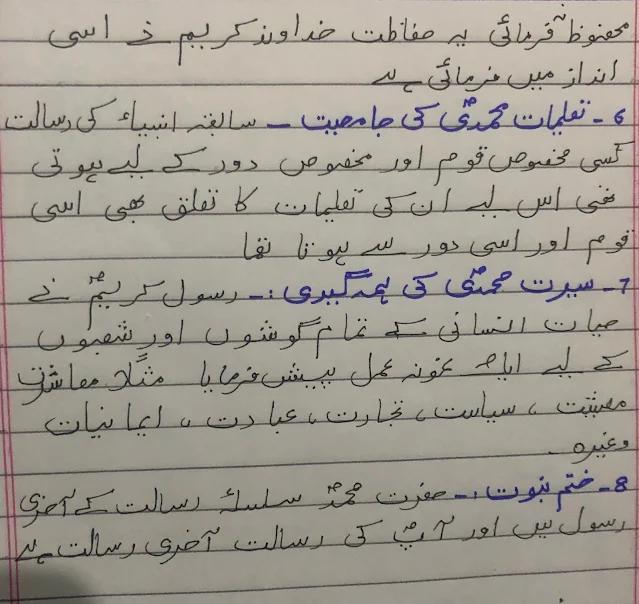 محفوظ فرمائی یہ حفاظت خداوند کریم نے اسی
انداز میں فرمائی ہے
6۔ تعلیمات محمدیؐ کی جامعیت ۔ سابقہ انبیاء کی رسالت
کسی مخصوص قوم اور مخصوص دور کے لیے ہوتی
تھی اس لیے ان کی تعلیمات کا تعلق بھی اسی
قوم اور اسی دور سے ہوتا تھا
7۔ سیرت محمدیؐ کی ہمہ گیری :۔ رسول کریمؐ نے
حیات انسانی کے تمام گوشوں اور شعبوں
کے لیے ایک نمونہ عمل پیش فرمایا مثلاً معاشرت
معیشت ، سیاست ، تجارت ، عبادت ، ایمانیات
وغیرہ ۔
8۔ ختم نبوت :۔ حضرت محمدؐ سلسلۂ رسالت کے آخری
رسول ہیں اور آپؐ کی رسالت آخری رسالت ہے